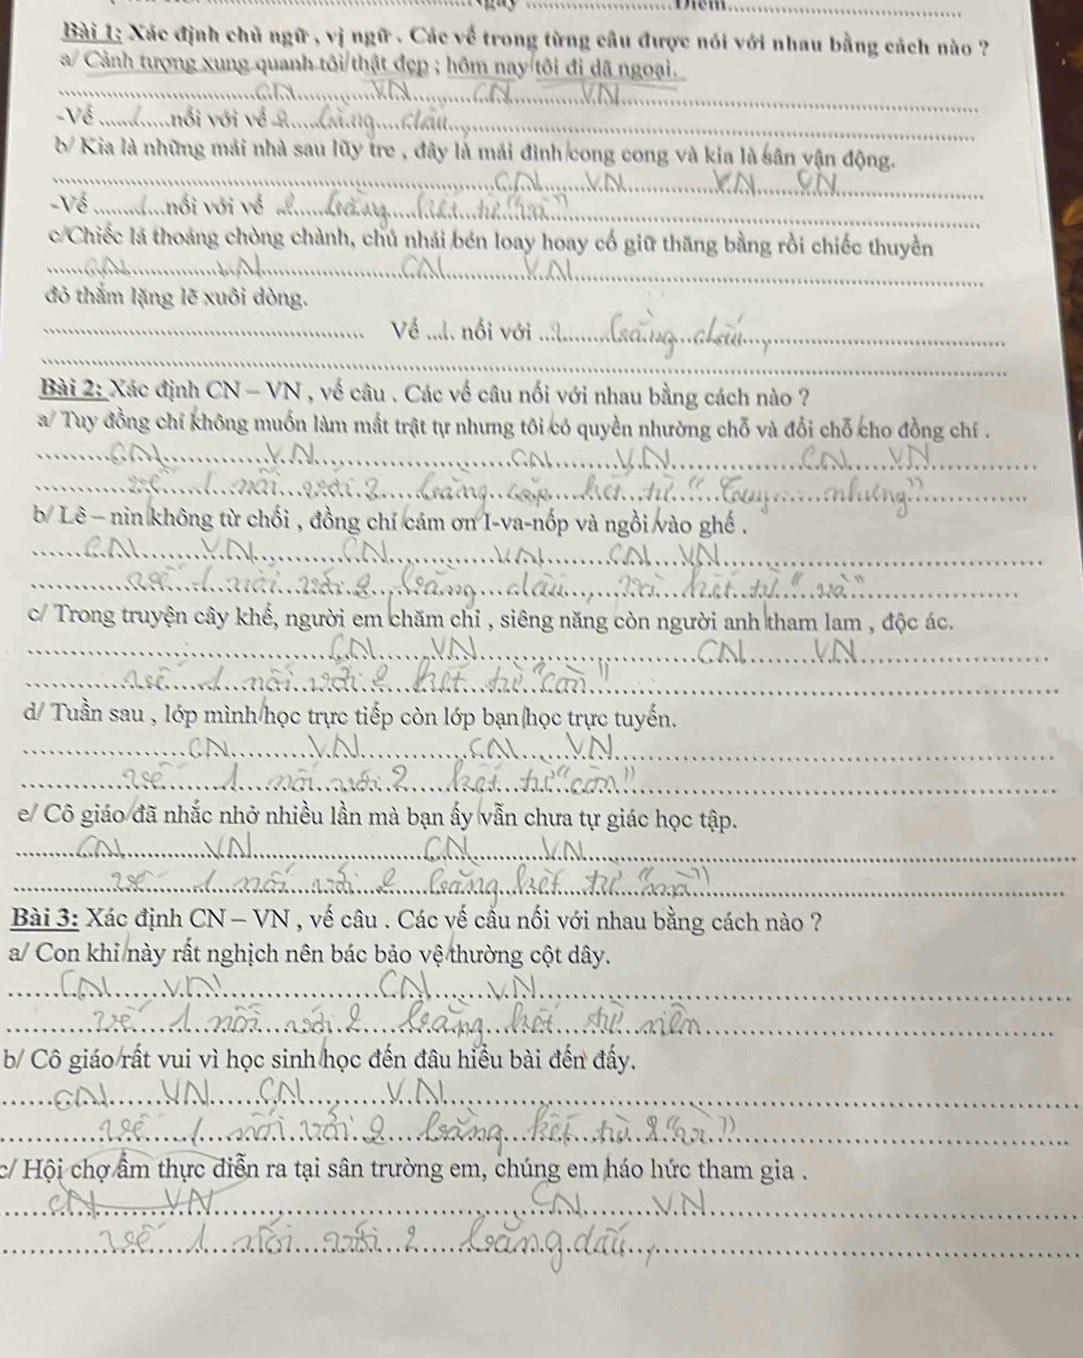 Bài 1: Xác định chủ ngữ , vị ngữ . Các vế trong từng câu được nói với nhau bằng cách nào ?
a/ Cảnh tượng xung quanh tôi/thật đẹp ; hôm nay/tôi đi dã ngoại.
CN VN CN VN
-Vế 1 nối với vế 2 bằng dấu ,
b/ Kia là những mái nhà sau lũy tre , đây là mái đình/cong cong và kia là sân vận động.
CN VN VN VN
-Vế 1 nối với vế 2 bằng kết từ
c/Chiếc lá thoáng chòng chành, chú nhái bén loay hoay cố giữ thăng bằng rồi chiếc thuyền
CN VN CN VN
đỏ thắm lặng lẽ xuôi dòng.
Vế 1. nối với 2 bằng dấu ,
Bài 2: Xác định CN – VN , vế câu . Các vế câu nối với nhau bằng cách nào ?
a/ Tuy đồng chí không muốn làm mất trật tự nhưng tôi/có quyền nhường chỗ và đổi chỗ cho đồng chí .
CN VN CN VN CN VN
vế 1 nối với 2 bằng cặp kết từ "Tuy nhưng"
b/ Lê – nin/không từ chối , đồng chí/cám ơn I-va-nốp và ngồi/vào ghế .
CN VN CN VN CN VN
vế 1 nối với 2 bằng dấu , và kết từ "và"
c/ Trong truyện cây khế, người em/chăm chỉ , siêng năng còn người anh/tham lam , độc ác.
CN VN CN VN
vế 1 nối với 2 kết từ "còn"
d/ Tuần sau , lớp mình/học trực tiếp còn lớp bạn/học trực tuyến.
CN VN CN VN
vế 1 nối với 2 kết từ "còn"
e/ Cô giáo/đã nhắc nhở nhiều lần mà bạn ấy/vẫn chưa tự giác học tập.
CN VN CN VN
vế 1 nối với 2 bằng kết từ "mà"
Bài 3: Xác định CN – VN , vế câu . Các vế câu nối với nhau bằng cách nào ?
a/ Con khỉ/này rất nghịch nên bác bảo vệ/thường cột dây.
CN VN CN VN
vế 1 nối với 2 bằng kết từ nên
b/ Cô giáo/rất vui vì học sinh/học đến đâu hiểu bài đến đấy.
CN VN CN VN
vế 1 nối với 2 bằng kết từ "vì"
c/ Hội chợ/ẩm thực diễn ra tại sân trường em, chúng em/háo hức tham gia .
CN VN CN VN
vế 1 nối với 2 bằng dấu ,